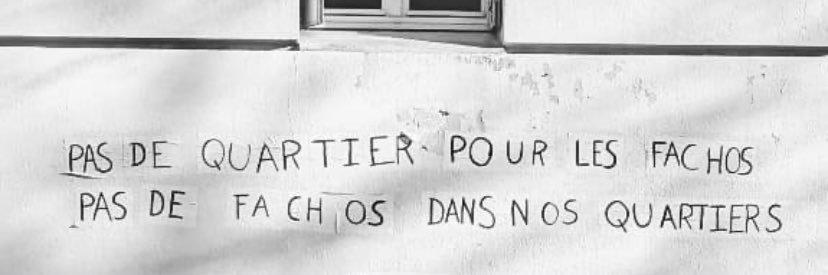 PAS DE QUARTIER POUR LES FACHOS
PAS DE FACHOS DANS NOS QUARTIERS